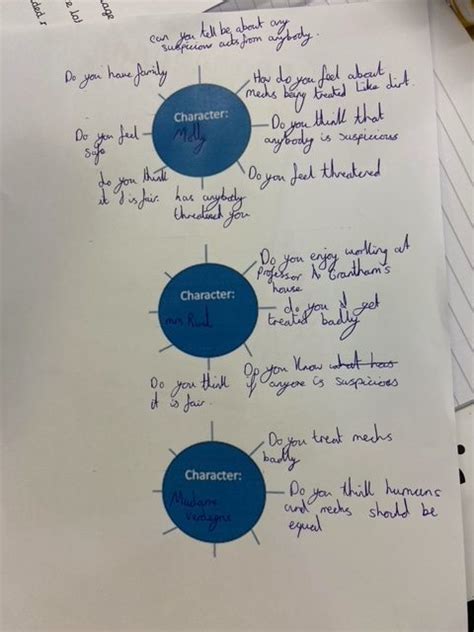 can you tell be about any
suspicious acts from anybody.
Do you have family
How do you feel about
mechs being treated like dirt.
Character:
Molly
Do you feel
safe
Do you think that
anybody is suspicious
do you think
it is fair.
has anybody
threatened you
Do you feel threatened
Do you enjoy working at
Professor Grantham's
house
Character:
mrs
do you get
treated badly
Do you think
it is fair.
Do you know what has
if anyone is suspicious
Do you treat mechs
badly
Character:
Madame
Do you think humans
and mechs should be
equal